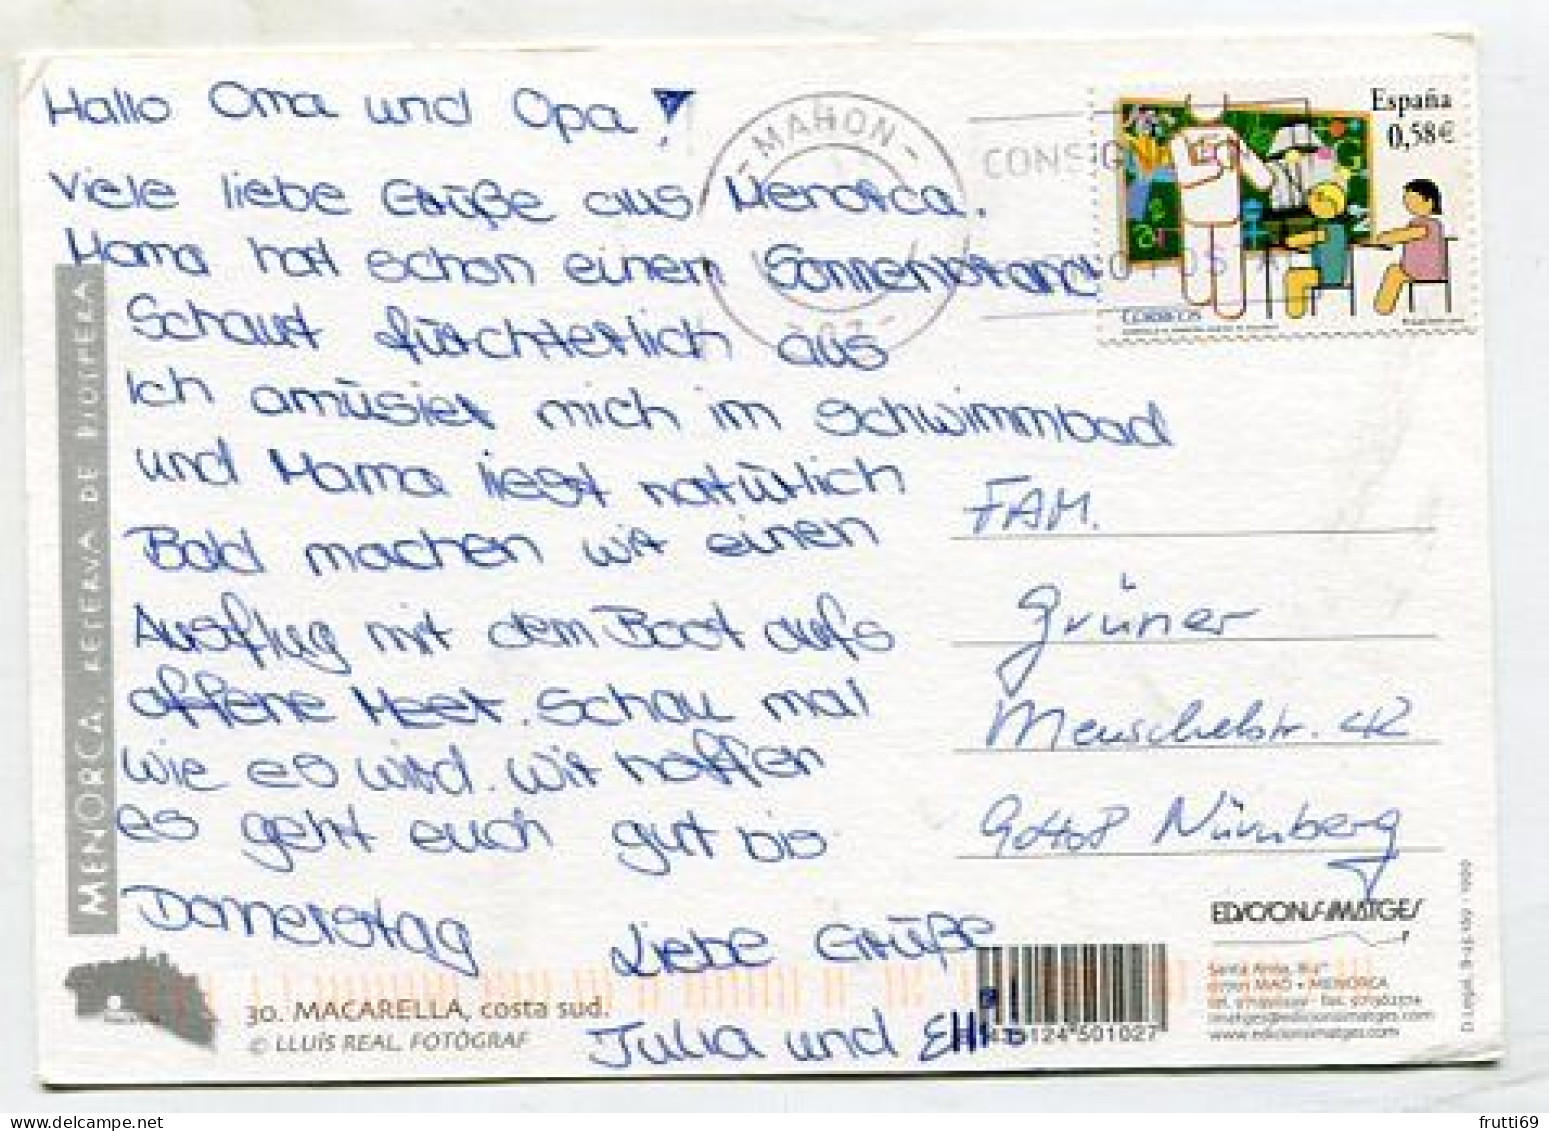 Hallo Oma und Opa!
Viele liebe Grüße aus Menorca.
Mama hat schon einen Sonnenbrand
Schaut fürchterlich aus
Ich amüsier mich im Schwimmbad
und Mama liest natürlich
Bald machen wir einen
Ausflug mit dem Boot aufs
offene Meer. Schau mal
wie es wird. Wir hoffen
es geht euch gut bis
Donnerstag
Liebe Grüße
Julia und
MAHON
CONSIG
España
0,58€
CORREOS
FAM.
Grüner
42
90408 Nürnberg
MENORCA. RESERVA DE BIOSFERA
30. MACARELLA, costa sud.
© LLUÍS REAL, FOTÒGRAF
EDICIONS IMATGES
MAÓ • MENORCA
imatges@edicionsimatges.com
www.edicionsimatges.com
124 501027
frutti69